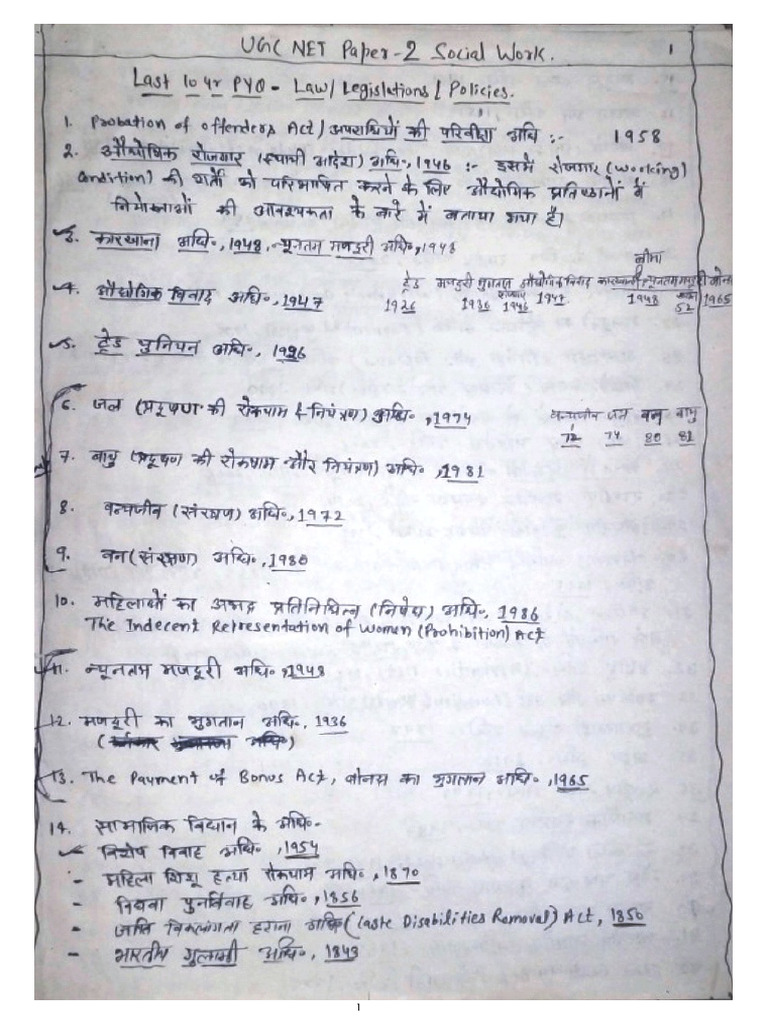 UGC NET Paper-2 Social Work.
1
Last 10 yr PYQ - Law/Legislations/Policies.
1. Probation of offenders Act/अपराधियों की परिवीक्षा अधि॰:- 1958
2. औद्योगिक रोजगार (स्थायी आदेश) अधि॰, 1946 :- इसमें रोजगार (Working
Condition) की शर्तों को परिभाषित करने के लिए औद्योगिक प्रतिष्ठानों में
नियोक्ताओं की आवश्यकता के बारे में बताया गया है।
3. कारखाना अधि॰, 1948, न्यूनतम मजदूरी अधि॰, 1948
बीमा
4. औद्योगिक विवाद अधि॰, 1947
ट्रेड मजदूरी भुगतान औद्योगिक विवाद कारखाना न्यूनतम मजदूरी बोनस
1926 1936 1946 1947 1948 52 1965
5. ट्रेड यूनियन अधि॰, 1926
6. जल (प्रदूषण की रोकथाम & नियंत्रण) अधि॰, 1974
वन्यजीव जल वन वायु
72 74 80 81
7. वायु (प्रदूषण की रोकथाम और नियंत्रण) अधि॰, 1981
8. वन्यजीव (संरक्षण) अधि॰, 1972
9. वन (संरक्षण) अधि॰, 1980
10. महिलाओं का अशिष्ट प्रतिनिधित्व (निषेध) अधि॰, 1986
The Indecent Representation of Women (Prohibition) Act
11. न्यूनतम मजदूरी अधि॰, 1948
12. मजदूरी का भुगतान अधि॰, 1936
13. The Payment of Bonus Act, बोनस का भुगतान अधि॰, 1965
14. सामाजिक विधान के अधि॰-
विशेष विवाह अधि॰, 1954
- महिला शिशु हत्या रोकथाम अधि॰, 1870
- विधवा पुनर्विवाह अधि॰, 1856
- जाति विकलांगता हटाना अधि॰ (Caste Disabilities Removal) Act, 1850
- भारतीय गुलामी अधि॰, 1843
1